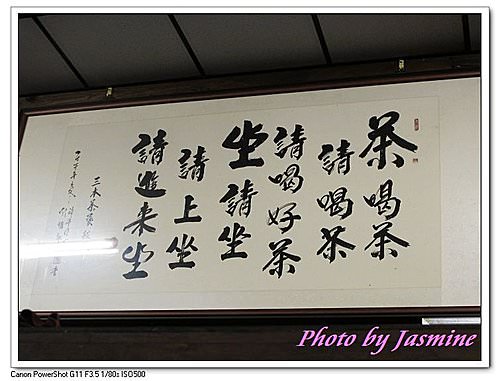 茶喝茶
請喝茶
請喝好茶
坐請坐
請上坐
請進来坐
三木茶藝
Photo by Jasmine
Canon PowerShot G11 F3.5 1/80s ISO500